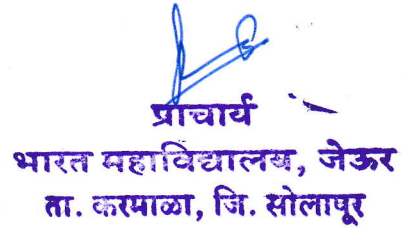 प्राचार्य
भारत महाविद्यालय, जेऊर
ता. करमाळा, जि. सोलापूर